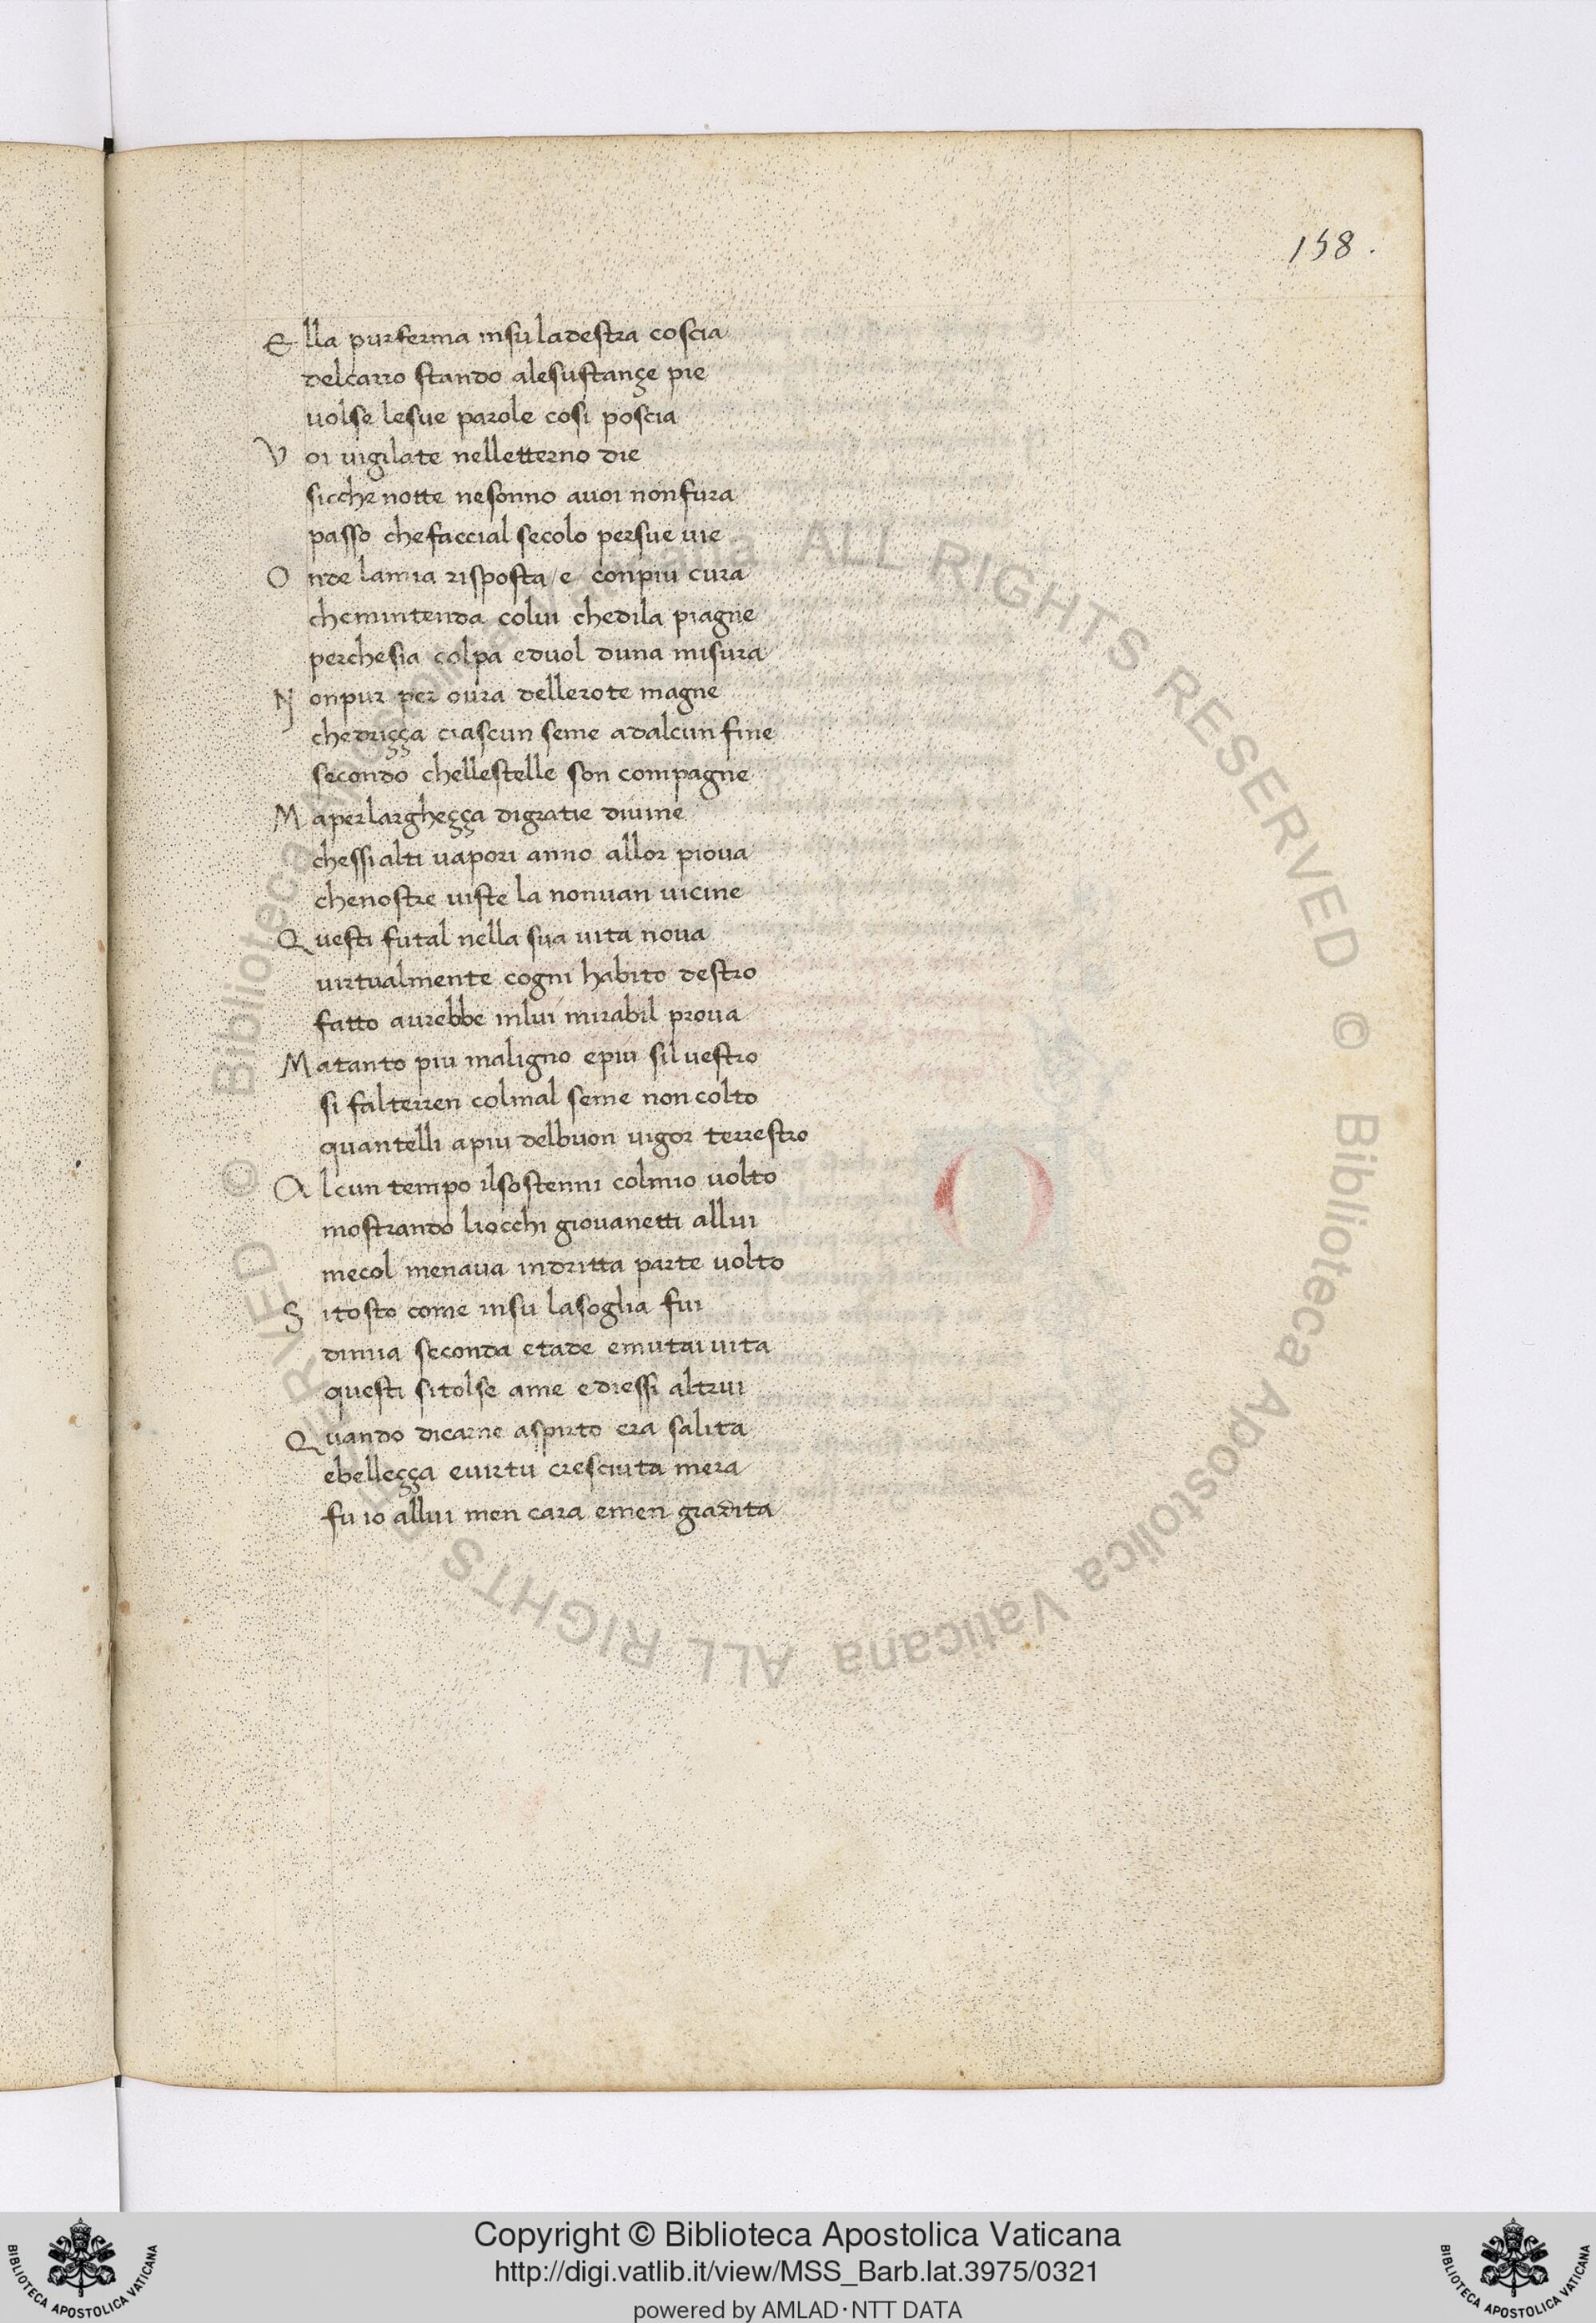 158.
Ella purferma insuladestra coscia
delcarro stando alesustançe pie
uolse lesue parole cosi poscia
Voi uigilate nelletterno die
sicche notte nesonno auoi nonfura
passo chefaccial secolo persue uie
Onde lamia risposta / e conpiu cura
chemintenda colui chedila piagne
perchesia colpa eduol duna misura
Nonpur per oura dellerote magne
chedriçça ciascun seme adalcun fine
secondo chellestelle son compagne
Maperlargheçça digratie diuine
chessi alti uapori anno allor pioua
chenostre uiste la nonuan uicine
Questi futal nella sua uita noua
uirtualmente cogni habito destro
fatto aurebbe inlui mirabil proua
Matanto piu maligno epiu siluestro
si falterren colmal seme non colto
quantelli apiu delbuon uigor terrestro
Alcun tempo ilsostenni colmio uolto
mostrando liocchi giouanetti allui
mecol menaua indritta parte uolto
Sitosto come insu lasoglia fui
dimia seconda etade emutai uita
questi sitolse ame ediessi altrui
Quando dicarne aspirto era salita
ebelleçça euirtu cresciuta mera
fu io allui men cara emen gradita
© Biblioteca Apostolica Vaticana ALL RIGHTS RESERVED © Biblioteca Apostolica Vaticana ALL RIGHTS RESERVED
Copyright © Biblioteca Apostolica Vaticana
http://digi.vatlib.it/view/MSS_Barb.lat.3975/0321
powered by AMLAD・NTT DATA
BIBLIOTECA APOSTOLICA VATICANA
BIBLIOTECA APOSTOLICA VATICANA